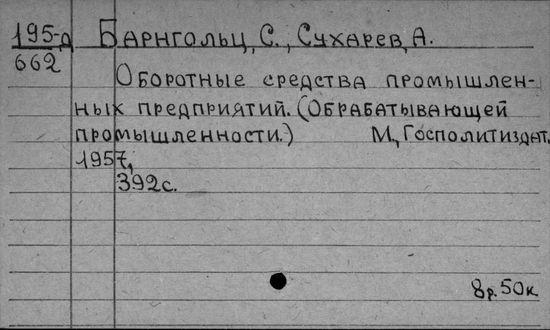 195-д Барнгольц, С., Сухарев, А.
662
Оборотные средства промышлен-
ных предприятий. (Обрабатывающей
промышленности.) М., Госполитиздат.
1957,
392 с.
8 р. 50 к